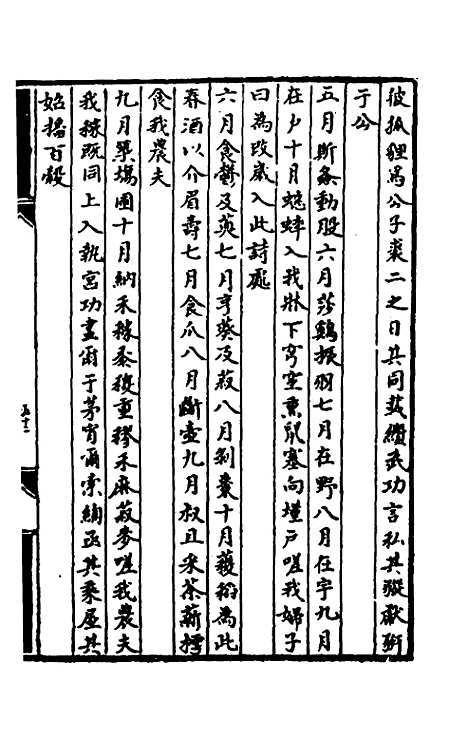 彼狐狸為公子裘二之日其同載纘武功言私其豵獻豜
于公
五月斯螽動股六月莎鷄振羽七月在野八月在宇九月
在户十月蟋蟀入我牀下穹窒熏鼠塞向墐户嗟我婦子
曰為改歲入此詩處
六月食鬱及薁七月亨葵及菽八月剝棗十月穫稻為此
春酒以介眉壽七月食瓜八月斷壺九月叔苴采荼薪樗
食我農夫
九月築場圃十月納禾稼黍稷重穋禾麻菽麥嗟我農夫
我稼既同上入執宮功晝爾于茅宵爾索綯亟其乘屋其
始播百穀
五十二